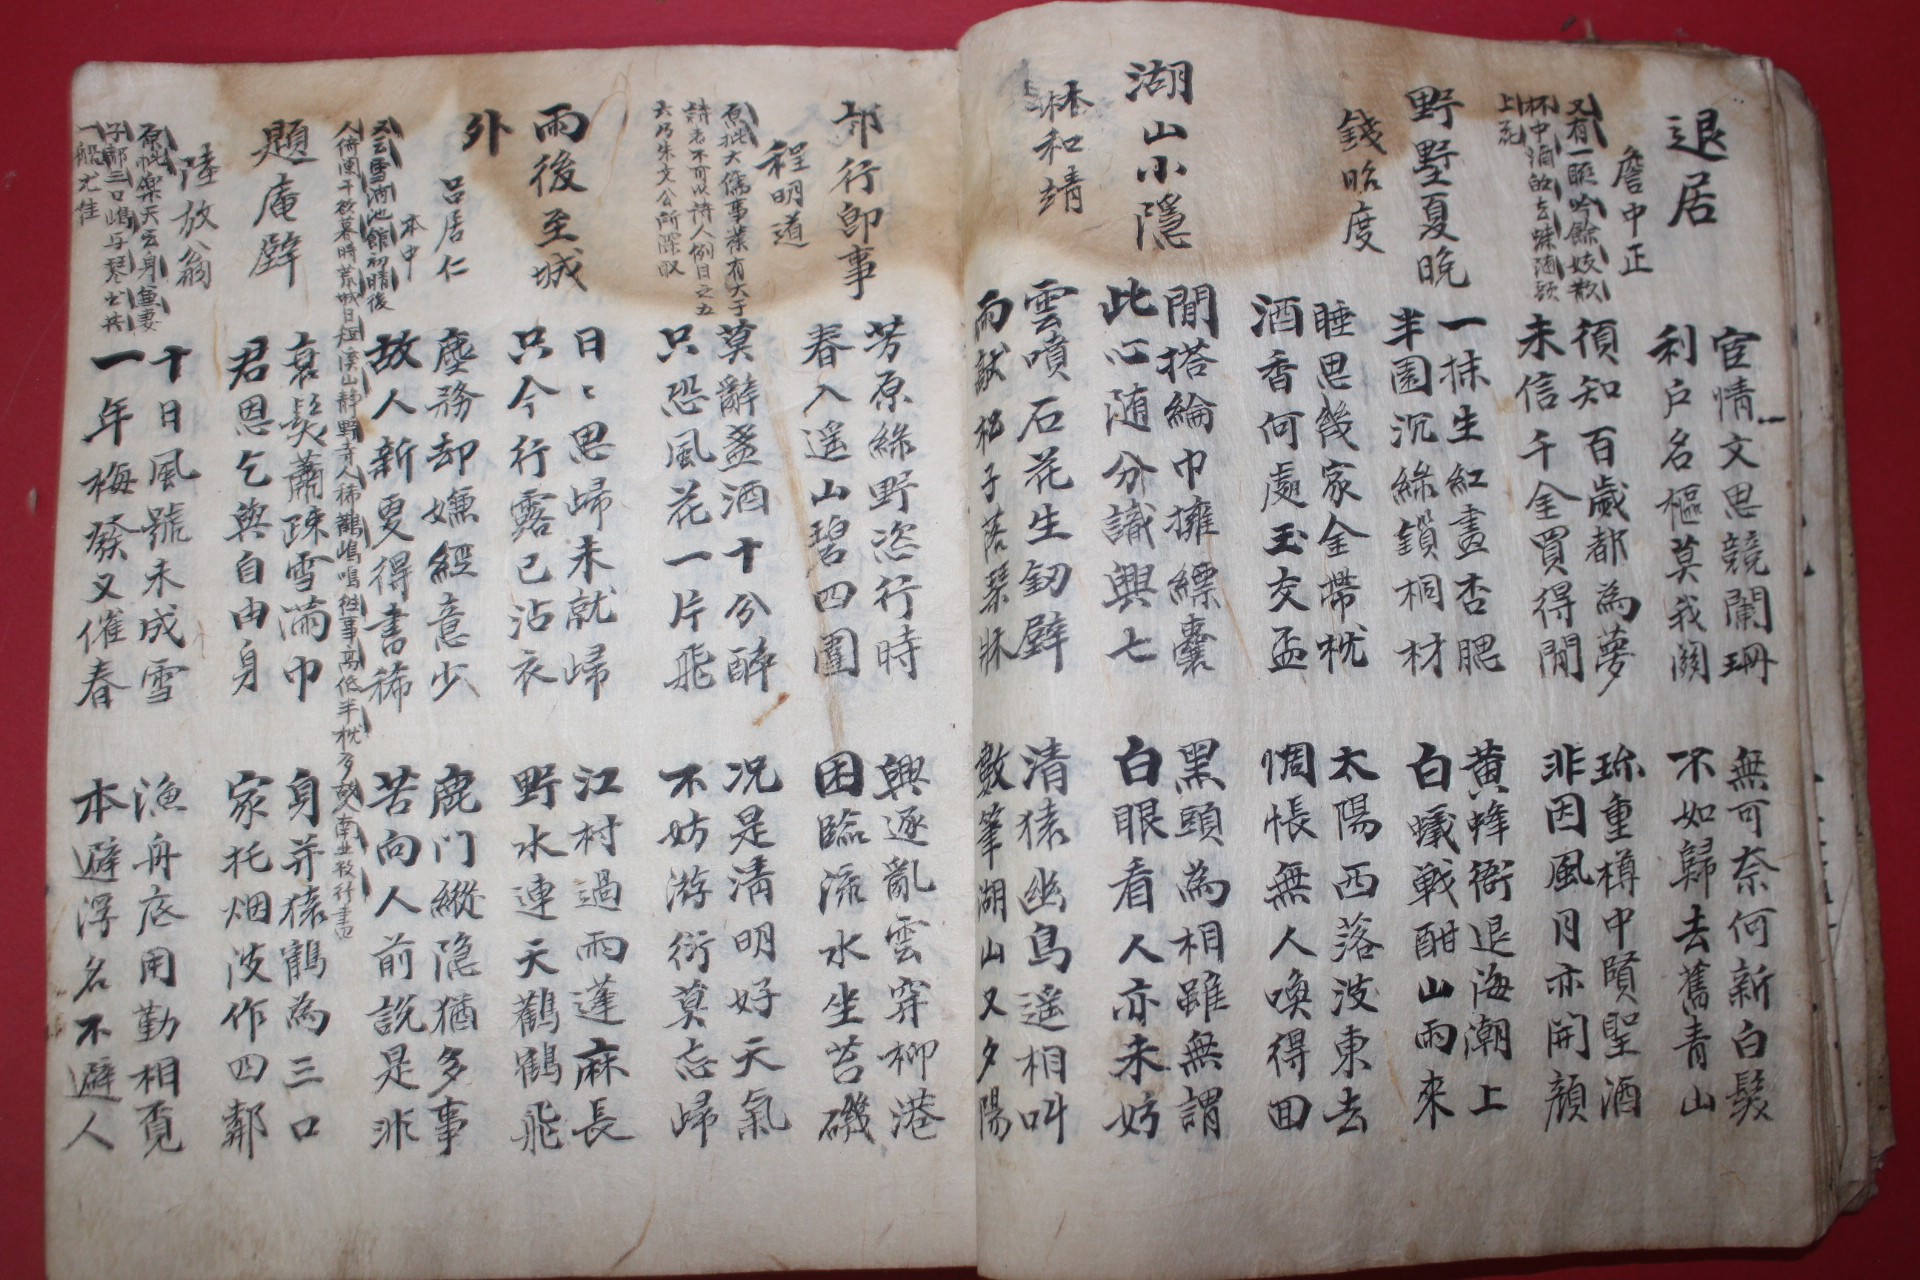 退居
詹中正
又有一聯吟餘妓散
杯中酒的去蝶酒頭
上花
宦情文思競闌珊 無可奈何新白髮
利戶名樞莫我関 不如歸去舊青山
須知百歲都為夢 珎重樽中賢聖酒
未信千金買得閒 非因風月亦開顔
野墅夏晚
錢昭度
一抹生紅畫杏腮 黄蜂衙退海潮上
半園沉綠鎖桐材 白蟻戦酣山雨來
睡思幾家金帶枕 太陽西落波東去
酒香何處玉交盃 惆悵無人喚得回
湖山小隱
林和靖
閒搭綸巾擁縹囊 黑頭為相雖無謂
此心随分識興亡 白眼看人亦未妨
雲噴石花生釰壁 清猿幽鳥遥相叫
雨敲松子落琴牀 數筆湖山又夕陽
郊行即事
程明道
原批大儒事業有大于
詩者不可以詩人例目之五
六乃朱文公所深取
芳原綠野恣行時 興逐亂雲穿柳港
春入遥山碧四圍 困臨流水坐苔磯
莫辭盞酒十分醉 况是清明好天氣
只恐風花一片飛 不妨游衍莫忘歸
雨後至城
外
呂居仁
本中
日〻思歸未就歸 江村過雨蓬麻長
只今行露已沾衣 野水連天鸛鶴飛
塵務却嫌經意少 鹿門縱隐猶多事
故人新更得書稀 苦向人前説是非
又云雪消池館初晴後
人倚闌干欲暮時荒城日短溪山静野寺人稀鸛鳴往事高低半枕夢故人南北数行書
題庵壁
陸放翁
衰髮蕭疎雪滿巾 身并猿鶴為三口
君恩乞與自由身 家托烟波作四鄰
十日風號未成雪 漁舟底用勤相覓
一年梅發又催春 本避浮名不避人
原批樂天云身無妻
子都三口鳴与琴書共
一船尤佳